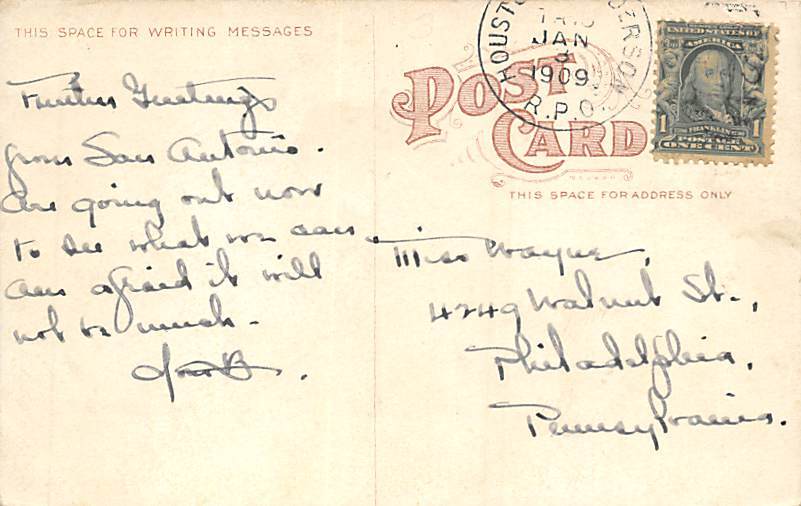 THIS SPACE FOR WRITING MESSAGES
Further Greetings
from San Antonio.
are going out now
to see what we can
am afraid it will
not be much -
B.
POST
CARD
THIS SPACE FOR ADDRESS ONLY
HOUSTO DERSON
JAN
3
1909
R.P.O.
UNITED STATES OF
AMERICA
1 FRANKLIN 1
POSTAGE
ONE CENT
Miss Wayne,
4249 Walnut St.,
Philadelphia,
Pennsylvania.